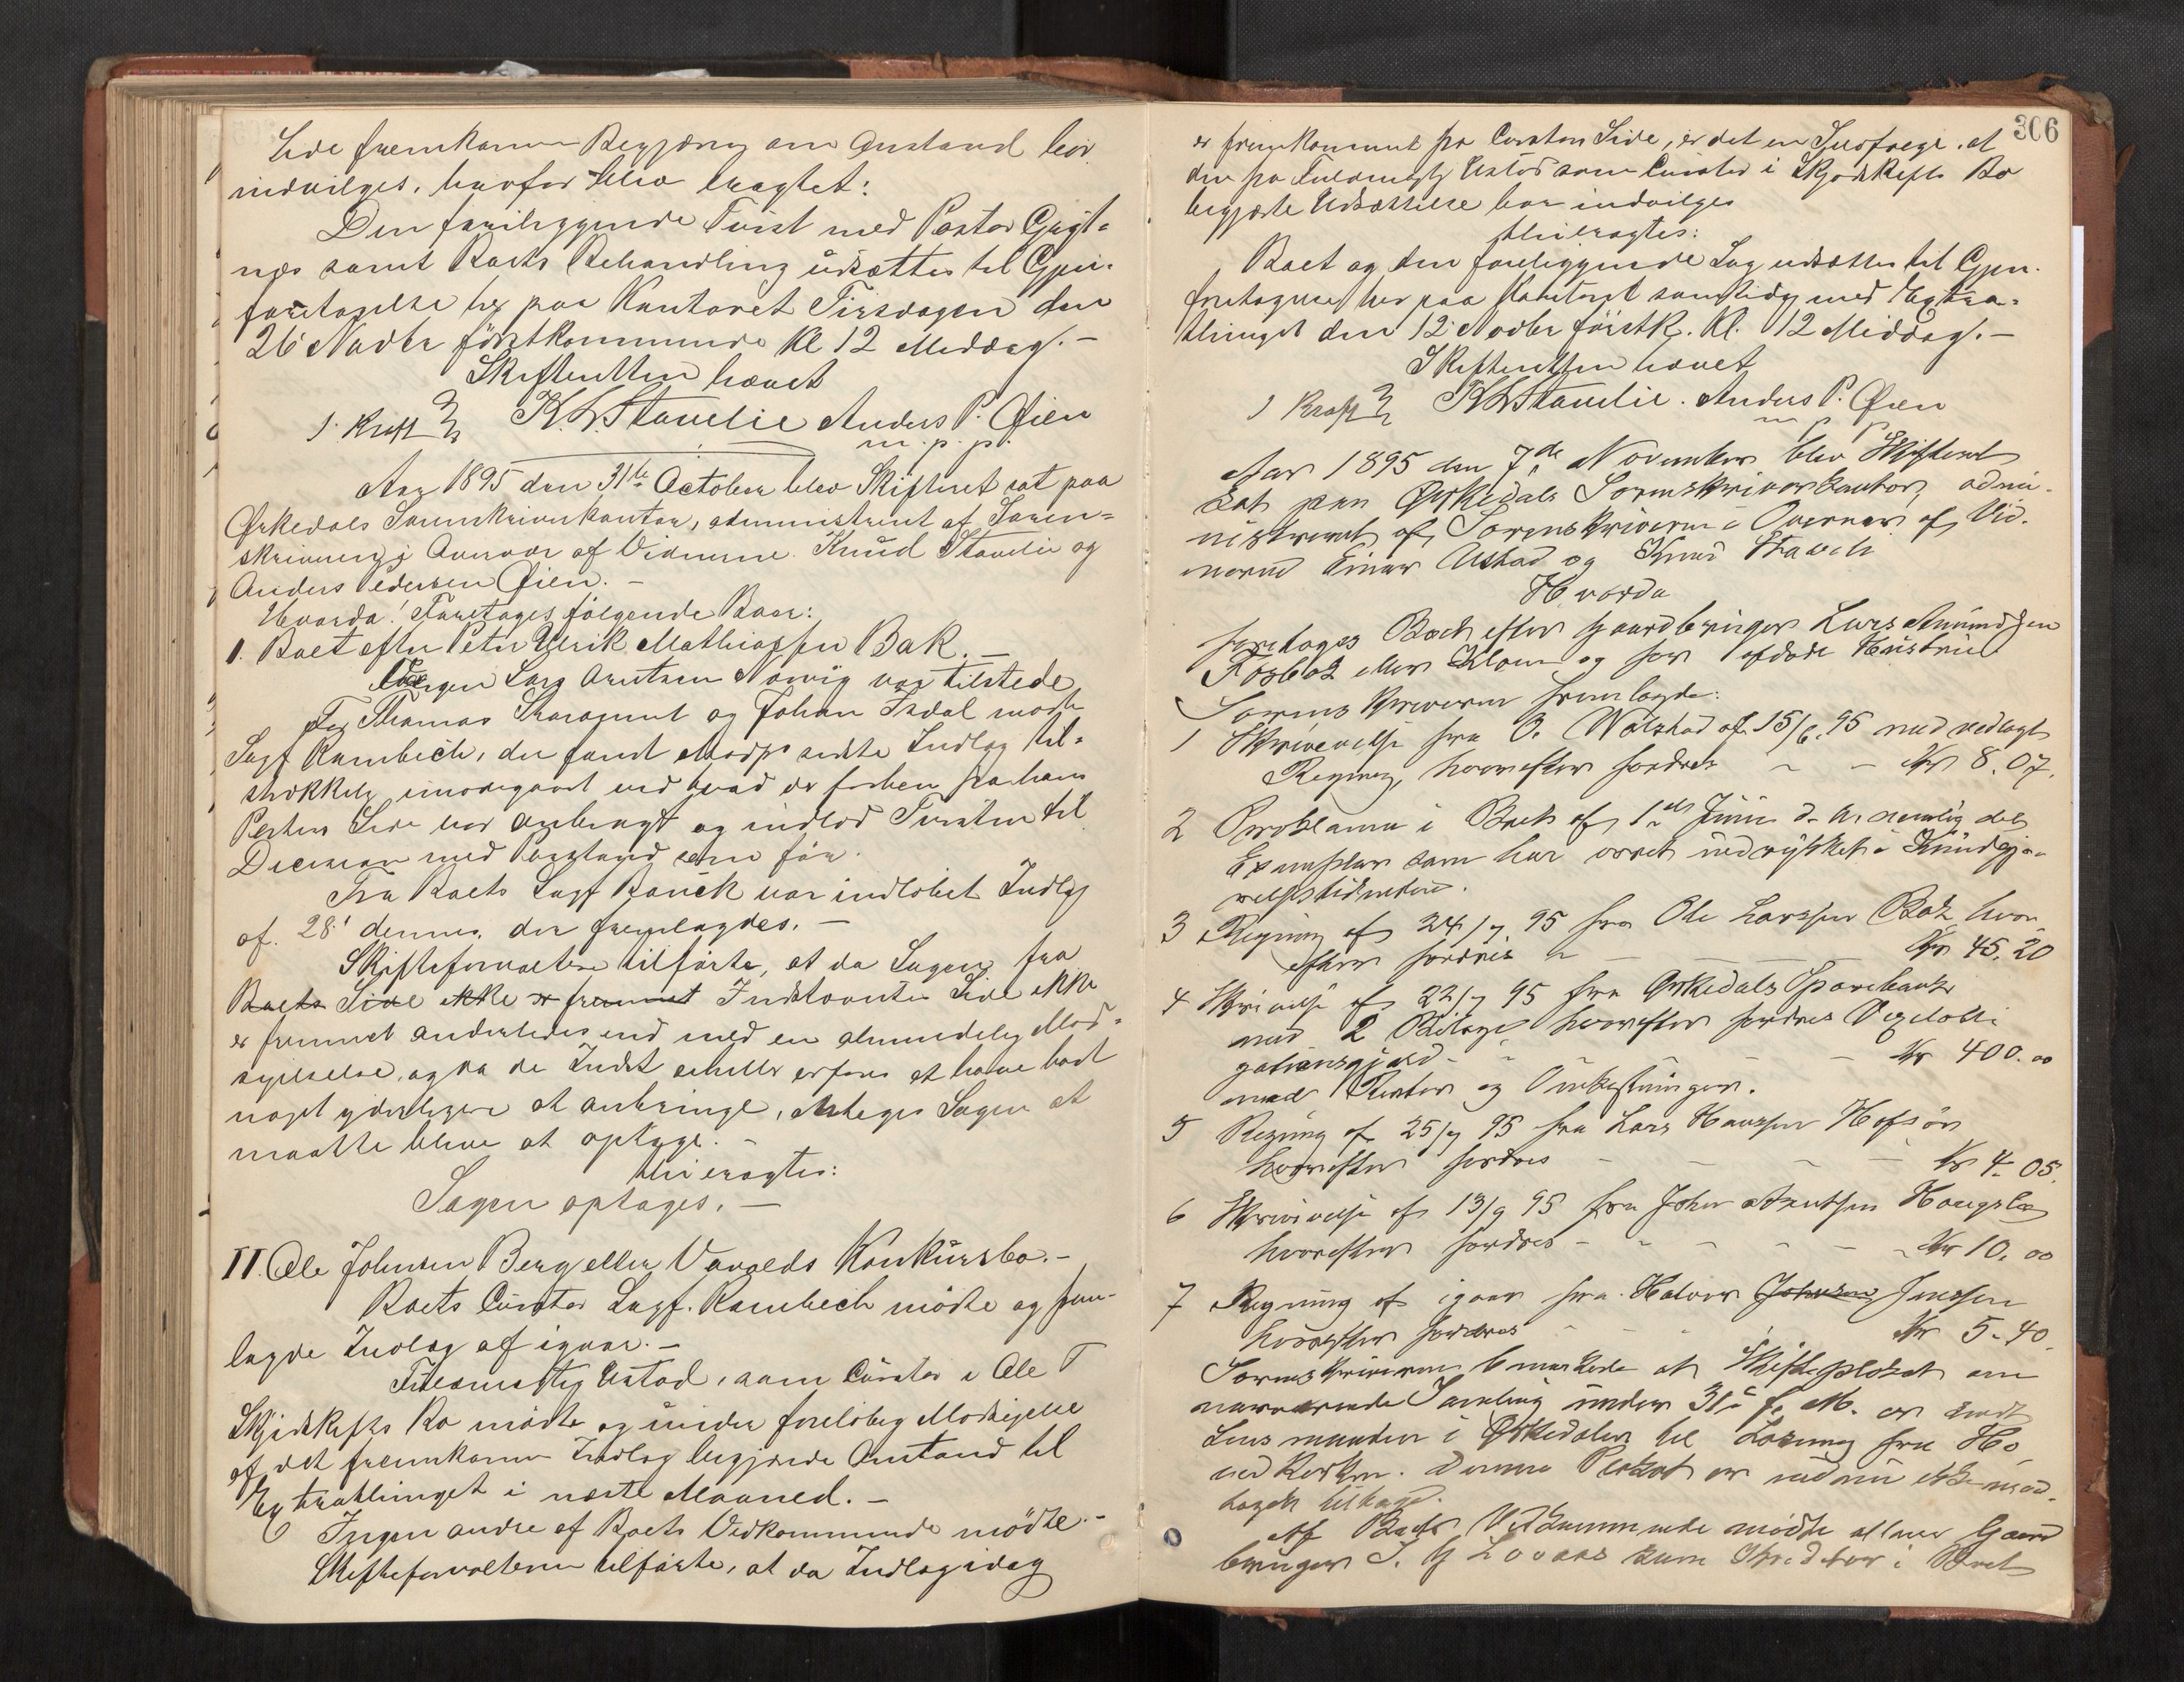 Side fremkomne Begjæring om Anstand bør
indvilges, hvorfor blev eragtet:
Den foreliggende Tvist med Pastor Gjigt-
næs samt Boets Behandling udsættes til Gjen-
foretagelse her paa Kontoret Tirsdagen den
26' Novbr førstkommende Kl 12 Middag. -
Skifteretten hævet
J. Kraft K. L. Stavelie Anders P. Øien
m. p. p.
Aar 1895 den 31te October blev Skifteret sat paa
Ørkedals Sorenskriverkontor, administreret af Soren-
skriveren i Overvær af Vidnerne Knud Stavelie og
Anders Pedersen Øien. -
Hvorda! Foretages følgende Boer:
1. Boet efter Peter Ulrik Mathiassen Bak. -
Lars Arntsen Norvig var tilstede
For Thomas og Johan Isdal mødte
Sagf Rambech, der fandt Modp. sidste Indlæg til-
strækkelig imødegaaet ved hvad der forhen fra hans
Parters Side var anbragt og indlod Tvisten til
Decision med Paastand som før.
Fra Boets Sagf Bauck var indløbet Indlæg
af 28' dennes, der fremlagdes. -
Skifteforvalteren tilførte, at da Sagen fra
Boets Side ikke er fremmet Indstevnte Side ikke
er fremmet anderledes end med en almindelig Mod-
sigelse, og da de Indst scheller erfares at have havt
noget yderligere at anbringe, antages Sagen at
maatte blive at optage. -
thi eragtes:
Sagen optages. -
II. Ole Johnsen Berg eller Vavolds Konkursbo. -
Boets Curator Sagf. Rambech mødte og frem-
lagde Indlæg af igaar. -
Fuldmægtig Ustad, som Curator i Ole T
Skjødskifts Bo mødte og under foreløbig Modsigelse
af det fremkomne Indlæg begjærede Anstand til
Extrathinget i næste Maaned. -
Ingen andre af Boets Vedkommende mødte. -
Skifteforvalteren tilførte, at da Indlæg idag
306
er fremkommet fra Curators Side, er det en Selvfølge, at
den fra Fuldmægtig Ustad som Curator i Skjødskifts Bo
begjærte Udsættelse bør indvilges
thi eragtes:
Boet og den foreliggende Sag udsættes til Gjen-
foretagelse her paa Kontoret samtidig med Extra-
thinget den 12' Novbr førstk. Kl. 12 Middag. -
Skifteretten hævet
J Kraft K L Stavelie. Anders P. Øien
m p p
Aar 1895 den 7de November blev Skifteret
sat paa Ørkedals Sorenskriverkontor, admi-
nistreret af Sorenskriveren i Overvær af Vid-
nerne Einar Ustad og Knud Stavli
Hvorda
foretages Boet efter Gaardbruger Lars Amundsen
Fosbak eller Klomn og før afdøde Hustru
Sorenskriveren fremlagde:
1 Skrivelse fra O. Wolstad af 15/6. 95 med vedlagt
Regning, hvorefter fordres - - Kr 8.07.
2 Proklama i Boet af 1ste Juni d. A. nemlig det
Exemplar som har været indrykket i Kundgjø-
relsestidende.
3 Regning af 24/7 95 fra Ole Larssen Bak hvor
efter fordres - - Kr 45.20
4 Skrivelse af 22/7 95 fra Ørkedals Sparebank
med 2 Bilage hvorefter fordres Vexelobli-
gationsgjæld - - - Kr 400.00
med Renter og Omkostninger.
5 Regning af 25/7 95 fra Lars Hanssen Hofsøn
hvorefter fordres - - - - Kr 4.05.
6 Skrivelse af 13/9 95 fra John Arntsen Haugslæ
hvorefter fordres - - - - - Kr 10.00
7 Regning af igaar fra Halvor Johnsen Jenssen
hvorefter fordres - - - Kr 5.40.
Sorenskriveren bemærkede at Skifteplakat om
nærværende Samling under 31' f. M. er sendt
Lensmanden i Ørkedalen til Læsning fra
ved Kirken. Denne Plakat er endnu ikke mod-
tagen tilbage.
Af Boets Vedkommende mødte alene Gaard
bruger J. G. Lovaas som Kreditor i Boet